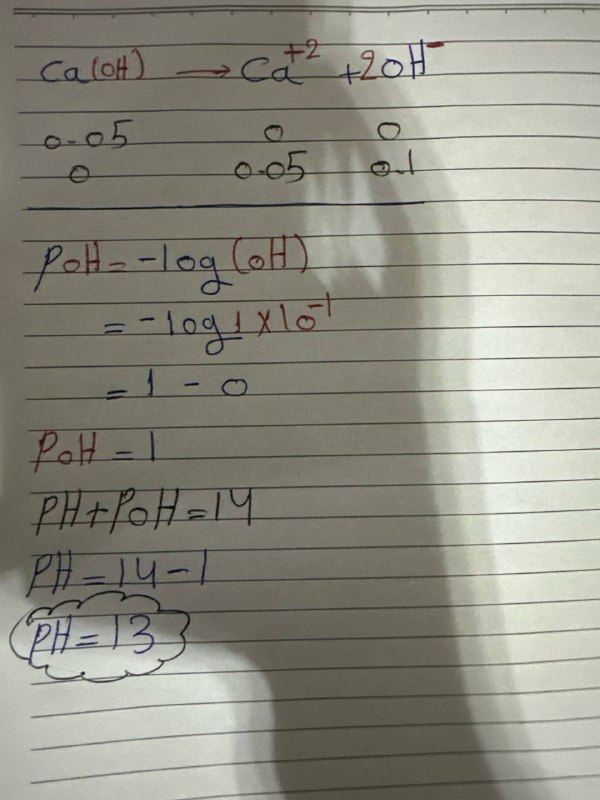 Ca(OH) → Ca+2 + 2OH-
0.05 0 0
0 0.05 0.1
POH = -log(OH)
= -log 1 x 10-1
= 1 - 0
POH = 1
PH + POH = 14
PH = 14 - 1
PH = 13